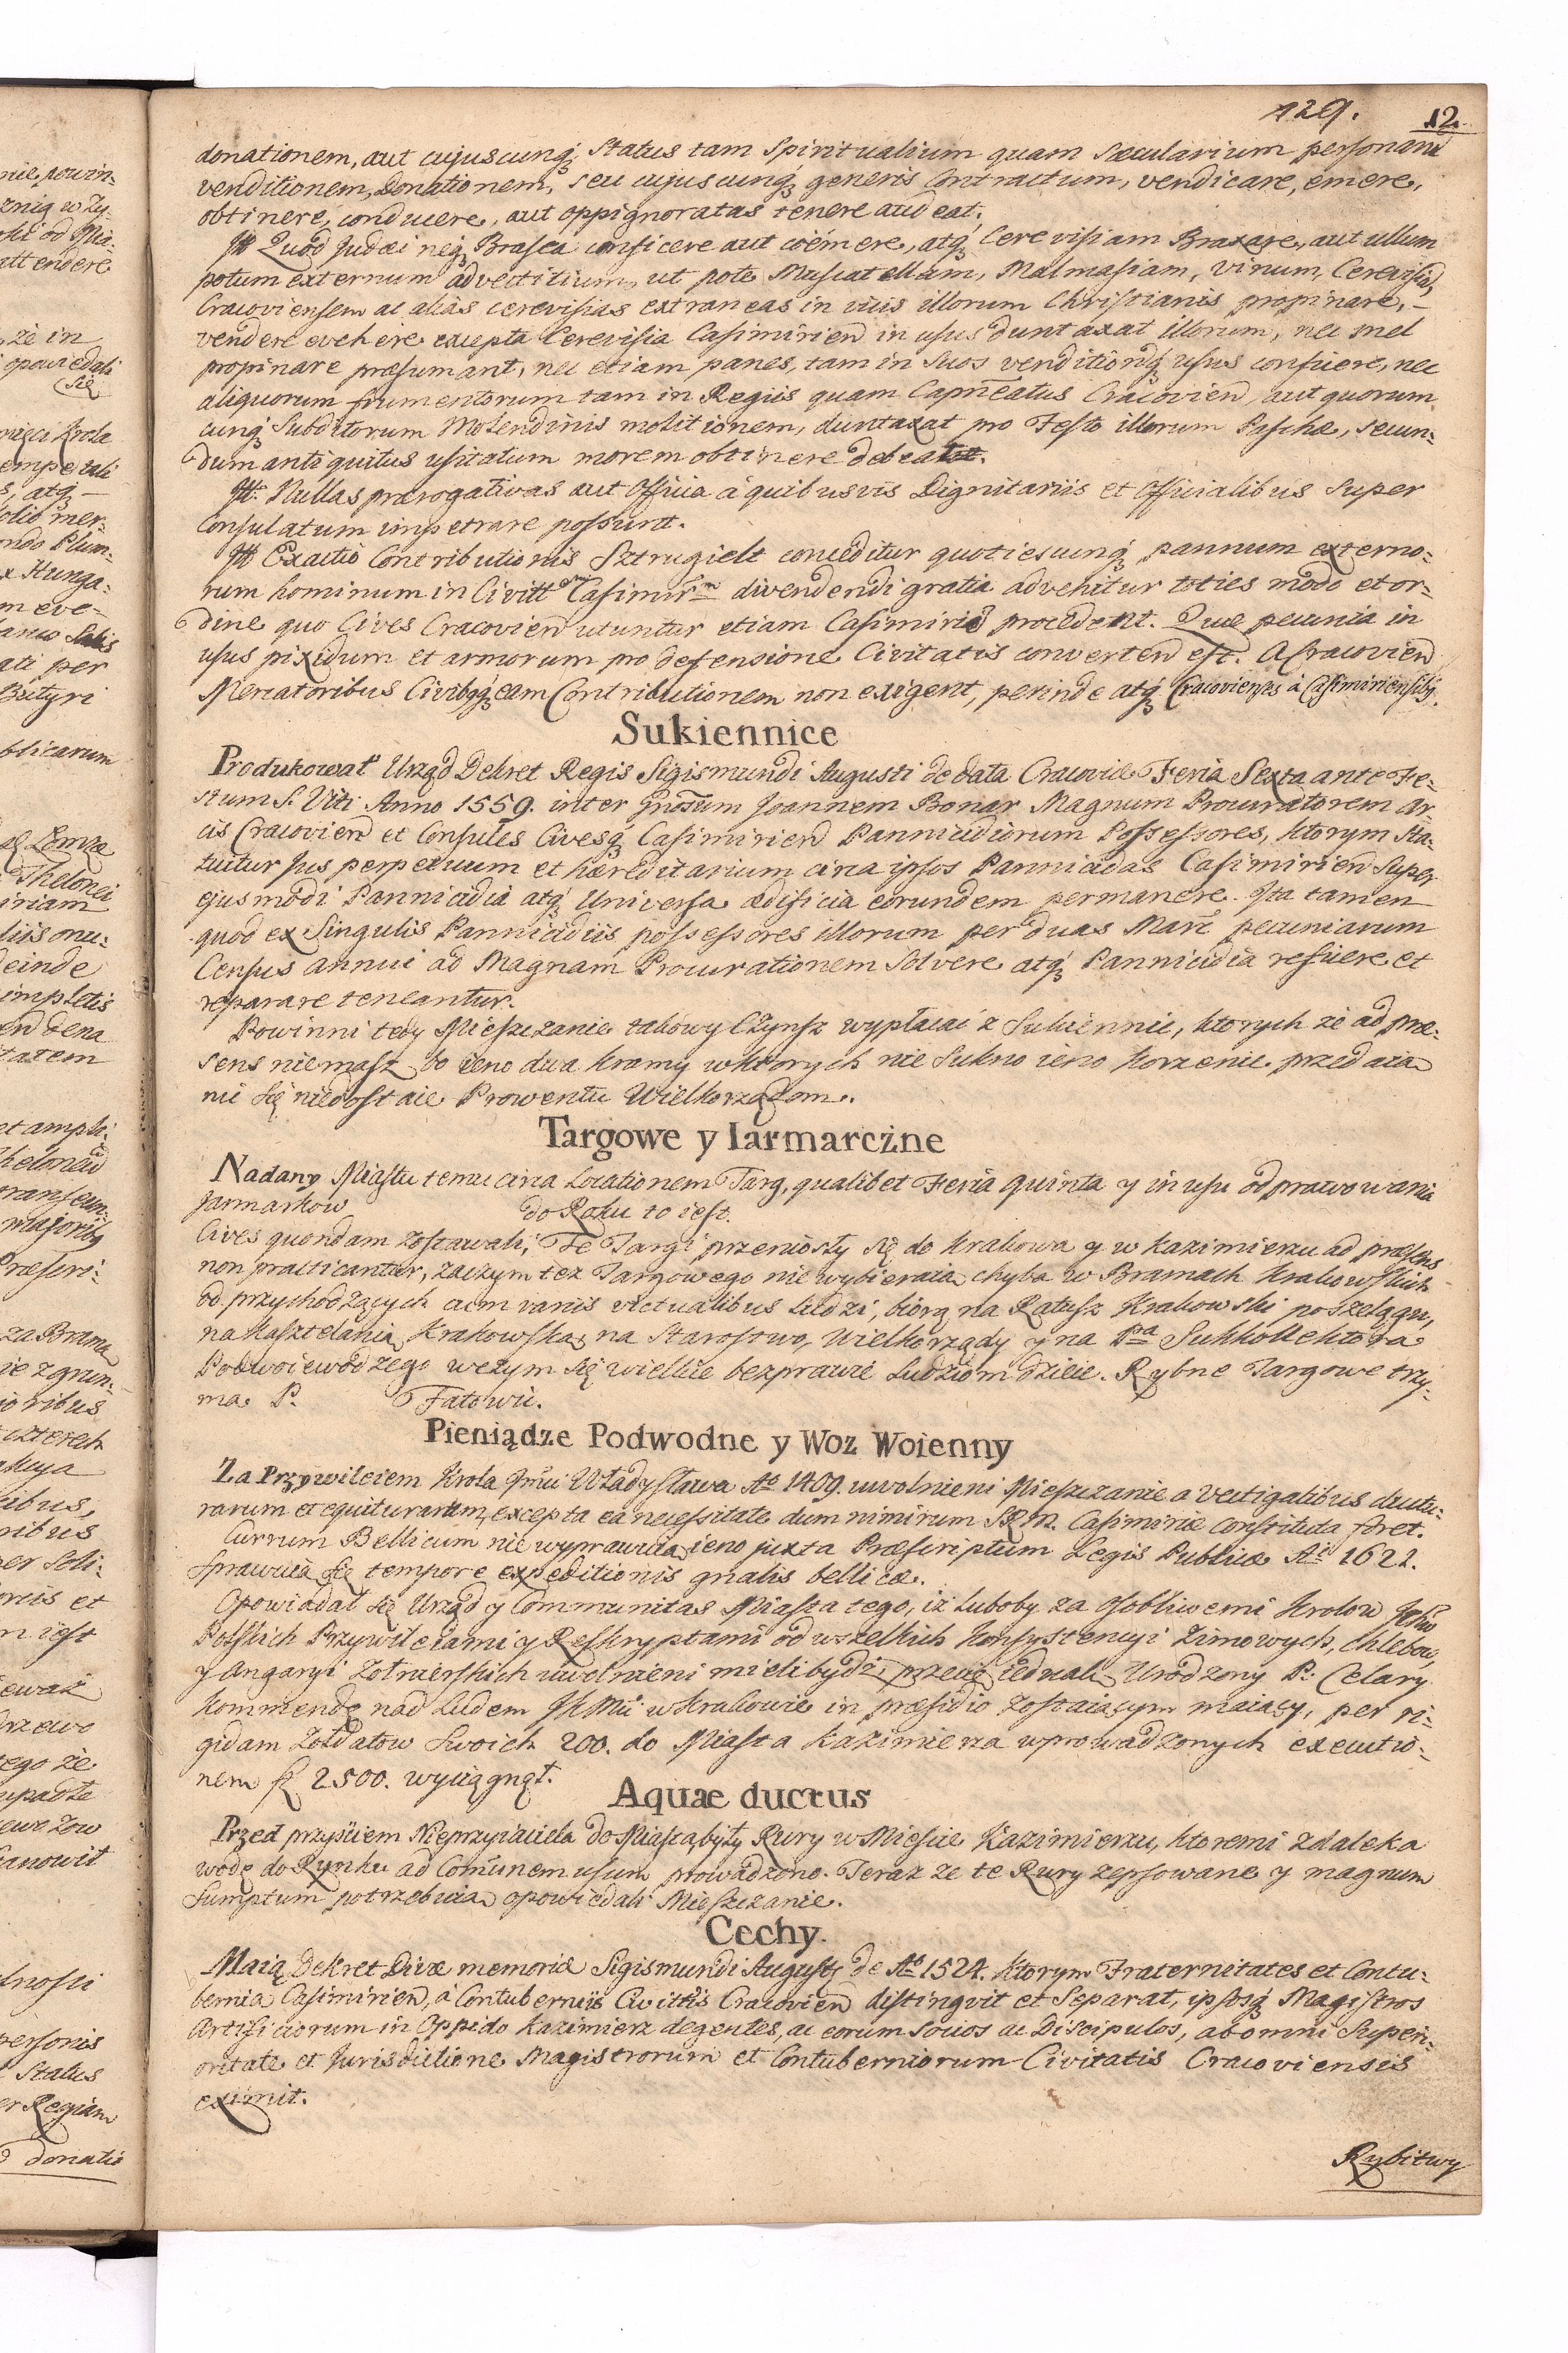 129. 12
donationem, aut cujuscunq₃ Status tam Spiritualium quam sæcularium personarū
venditionem, Donationem, seu cujuscunq₃ generis Contractum, vendicare, emere,
obtinere, conducere, aut oppignoratas tenere audeat.
Itt Quod Judæi neq₃ Brasea conficere aut coëmere, atq₃ Cerevisiam Braxare, aut ullum
potum externum advectitium, ut pote Muscatellam, Malmasiam, vinum, Cerevisiā
Cracoviensem ac alias cerevisias extraneas in vicis illorum Christianis propinare,
vendere evehere excepta Cerevisia Casimirien̄ in usus duntaxat illorum, nec mel
propinare præsumant, nec etiam panes, tam in suos venditionisq₃ usus conficere, nec
aliquorum frumentorum tam in Regiis quam Capn̄eatus Cracovien̄, aut quorum
cunq₃ Subditorum Molendinis molitionem, duntaxat pro Festo illorum Paschæ, secun-
dum antiquitus usitatum morem obtinere debeant.
Itt. Nullas prærogativas aut Officia á quibusvis Dignitariis et Officialibus super
Consulatum impetrare possunt.
Itt Exactio Contributionis Sztrugielt conceditur quotiescunq₃ pannum externo-
rum hominum in Civitt. Casimir. divendendi gratia advehitur toties modo et or-
dine quo Cives Cracovien̄ utuntur etiam Casimirien̄ procedent. Quæ pecunia in
usus pixidum et armorum pro defensione Civitatis converten̄ est. A Cracovien̄
Mercatoribus Civibusq₃ eam Contributionem non exigent, perinde atq₃ Cracovienses á Casimiriensibq.
Sukiennice
Produkował Urząd Dekret Regis Sigismundi Augusti de data Cracoviæ Feria Sexta ante Fe-
stum S. Viti Anno 1559. inter Gnosum Joannem Bonar Magnum Procuratorem ar-
cis Cracovien̄ et Consules Civesq₃ Casimirien̄ Pannicidiorum Possessores, ktorym sta-
tuitur Jus perpetuum et hæreditarium circa ipsos Pannicidas Casimirien̄ super
ejusmodi Pannicidia atq₃ Universa ædificia eorundem permanere. Ita tamen
quod ex Singulis Pannicidiis possessores illorum per duas Marc̄ pecuniarum
Census annui ad Magnam Procurationem Solvere atq₃ Pannicidia reficere et
reparare teneantur.
Powinni tedy Mieszczanie takowy Czynsz wypłacac z Sukiennic, ktorych że ad præ-
sens niemasz, bo ieno dwa kramy w ktorych nie Sukno ieno korzenie przedaią
nic się niedostaie Prowentu Wielkorządom.
Targowe y Iarmarcżne
Nadany Miastu temu circa Locationem Targ, qualibet Feria quinta y in usu odprawowania
Jarmarkow do Roku to iest.
Cives quondam zostawali, Te Targi przeniosły się do krakowa y w kazimierzu ad præsens
non practicantur, zaczym tez Targowego nie wybieraią chyba w Bramach Krakowskich
od przychodzących cum variis victualibus ludzi, biorą na Ratusz Krakowski po szelągu,
na kasztelanią Krakowską na Starostwo, Wielkorządy y na Pa Sukkollektora
Podwoiewodzego w czym się wielkie bezprawie Ludziom dzieie. Rybne Targowe trzy-
ma P. Fatowic.
Pieniądze Podwodne y Woz Woienny
Za Przywileiem Krola Jm̄ci Władysława Ao 1409. uwolnieni Mieszczanie a Vectigalibus ductu-
rarum et equiturarum, excepta ea necessitate dum nimirum SRM. Casimiriæ constituta foret.
Currum Bellicum nie wyprawuią ieno juxta Præscriptum Legis Publicæ Ai 1622.
Sprawuią się tempore expeditionis gnalis bellicæ.
Opowiadał się Urząd y Communitas Miasta tego, iż luboby za osobliwemi Krolow Ichm̄
Polskich Przywileiami y Reskryptami od wszelkich konsystencyi Zimowych, chlebow,
y Angaryi Zołnierskich uwolnieni mieli bydź, przecię iednak Urodzony P. Celary
kommendę nad Ludem JKMci w krakowie in præsidio zostaiącym maiący, per ri-
gidam Zołdatow Swoich 200. do Miasta kazimierza wprowadzonych executio-
nem fl 2500. wyciągnął.
Aquae ductus
Przed przyściem Nieprzyiaciela do Miasta, były Rury w Mieście Kazimierzu, ktoremi z daleka
wodę do Rynku ad Com̄unem usum prowadzono. Teraz że te Rury zepsowane y magnum
Sumptum potrzebuią opowiedali Mieszczanie.
Cechy.
Maią Dekret Divæ memoriæ Sigismundi Augusti de Ao 1524. ktorym Fraternitates et Contu-
bernia Casimirien̄, á Contuberniis Civittis Cracovien̄ distingvit et Separat, ipsosq₃ Magistros
Artificiorum in Oppido kazimierz degentes, ac eorum socios ac Discipulos, ab omni superi-
oritate et Jurisdictione Magistrorum et Contuberniorum Civitatis Cracoviensis
eximit.
Rybitwy